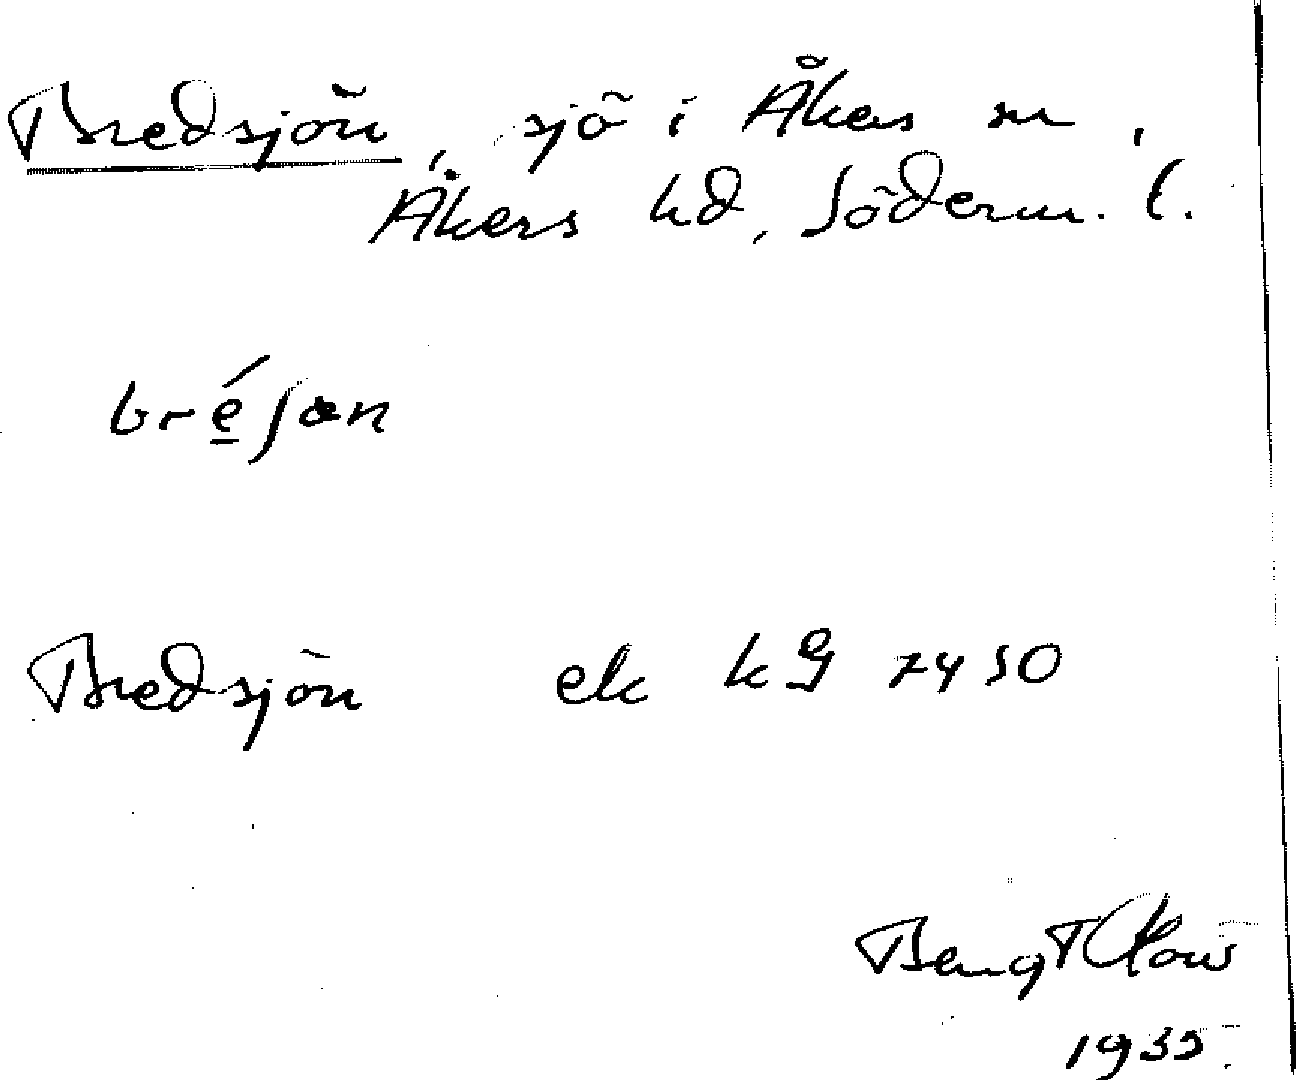 Bredsjön, sjö i Åkers sn,
Åkers hd, Söderm. l.
bre̲´ʃøn
Bredsjön ek kG 7450
Bengt
1935.